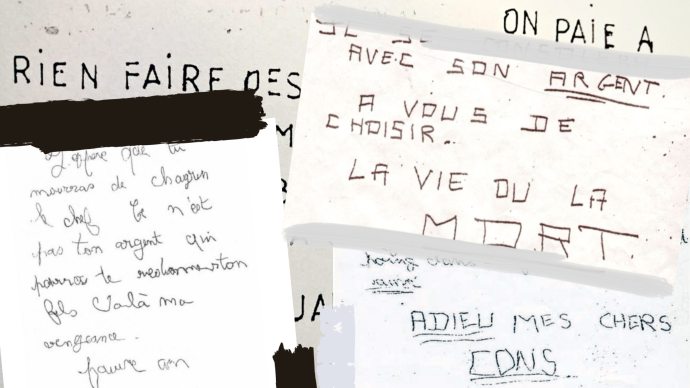 ON PAIE A
RIEN FAIRE DES
M
UA
AVEC SON ARGENT.
A VOUS DE
CHOISIR.
LA VIE OU LA
MORT.
J'espère que tu
mourras de chagrin
le chef Ce n'est
pas ton argent qui
pourra te redonner ton
fils Voilà ma
vengeance.
pauvre con
ADIEU MES CHERS
CONS